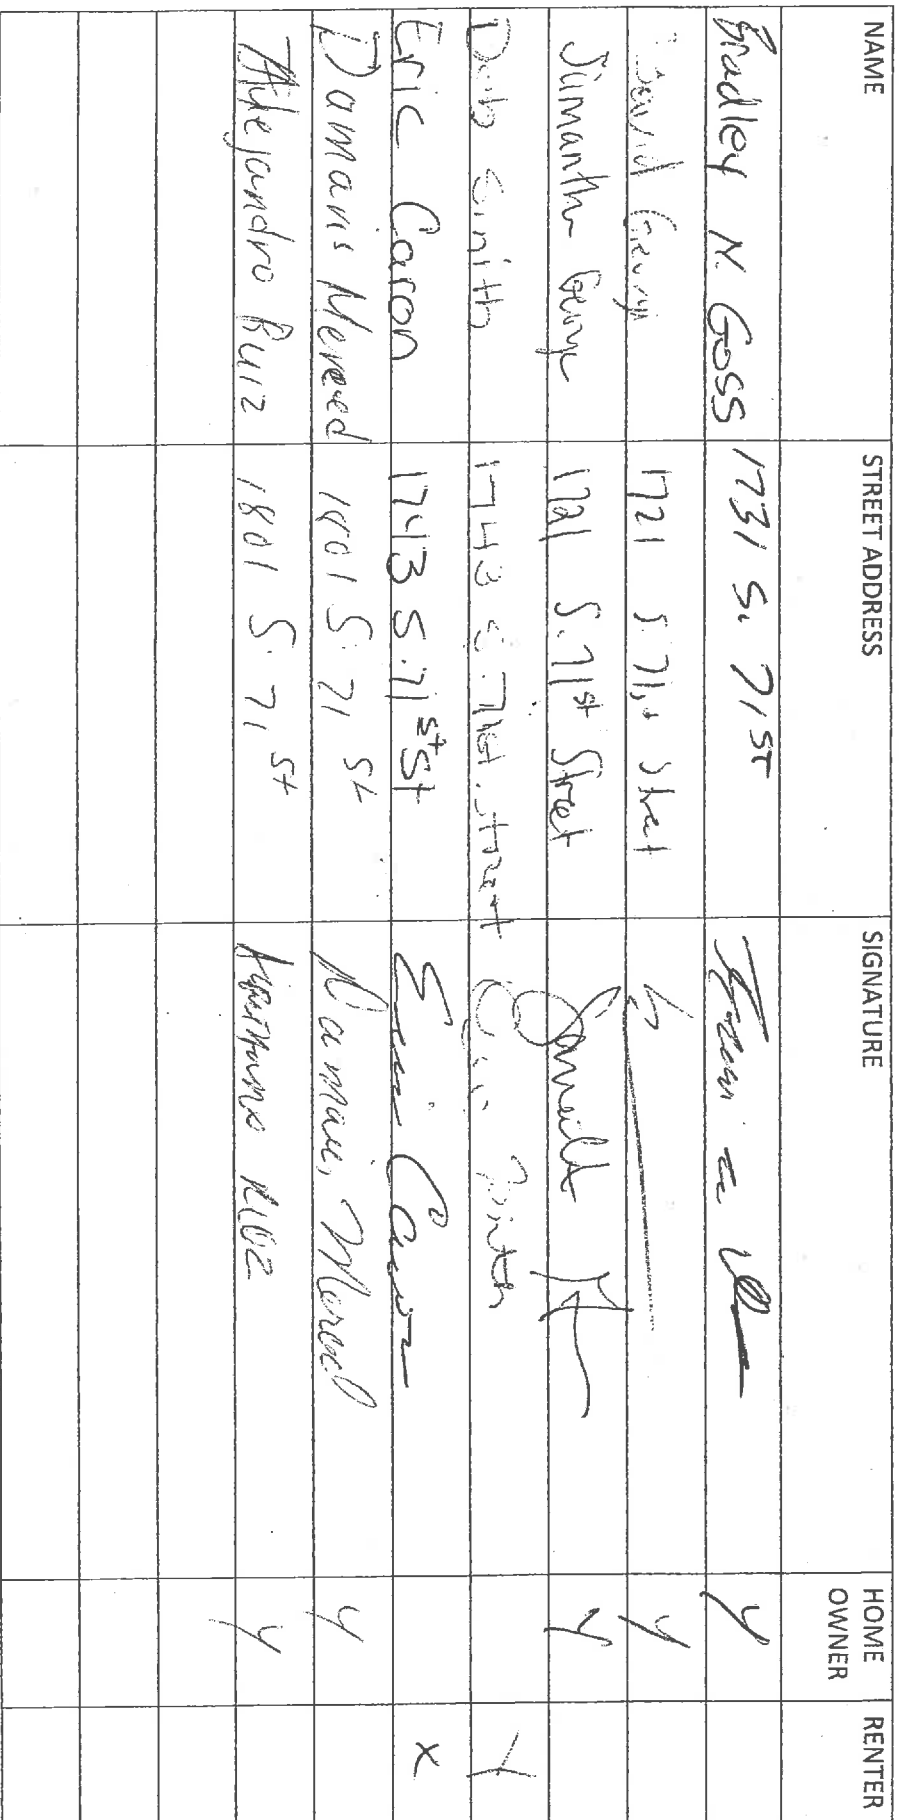 NAME STREET ADDRESS SIGNATURE HOME OWNER RENTER
Bradley N. Goss 1731 S. 71st Y
David George 1721 S. 71st Street Y
Samantha George 1721 S. 71st Street Y
Deb Smith 1743 S. 71st. Street Smith Y
Eric Caron 1743 S. 71st St Eric Caron X
Damaris Merced 1801 S. 71 St Damaris Merced Y
Alejandro Ruiz 1801 S. 71 St Alejandro Ruiz Y